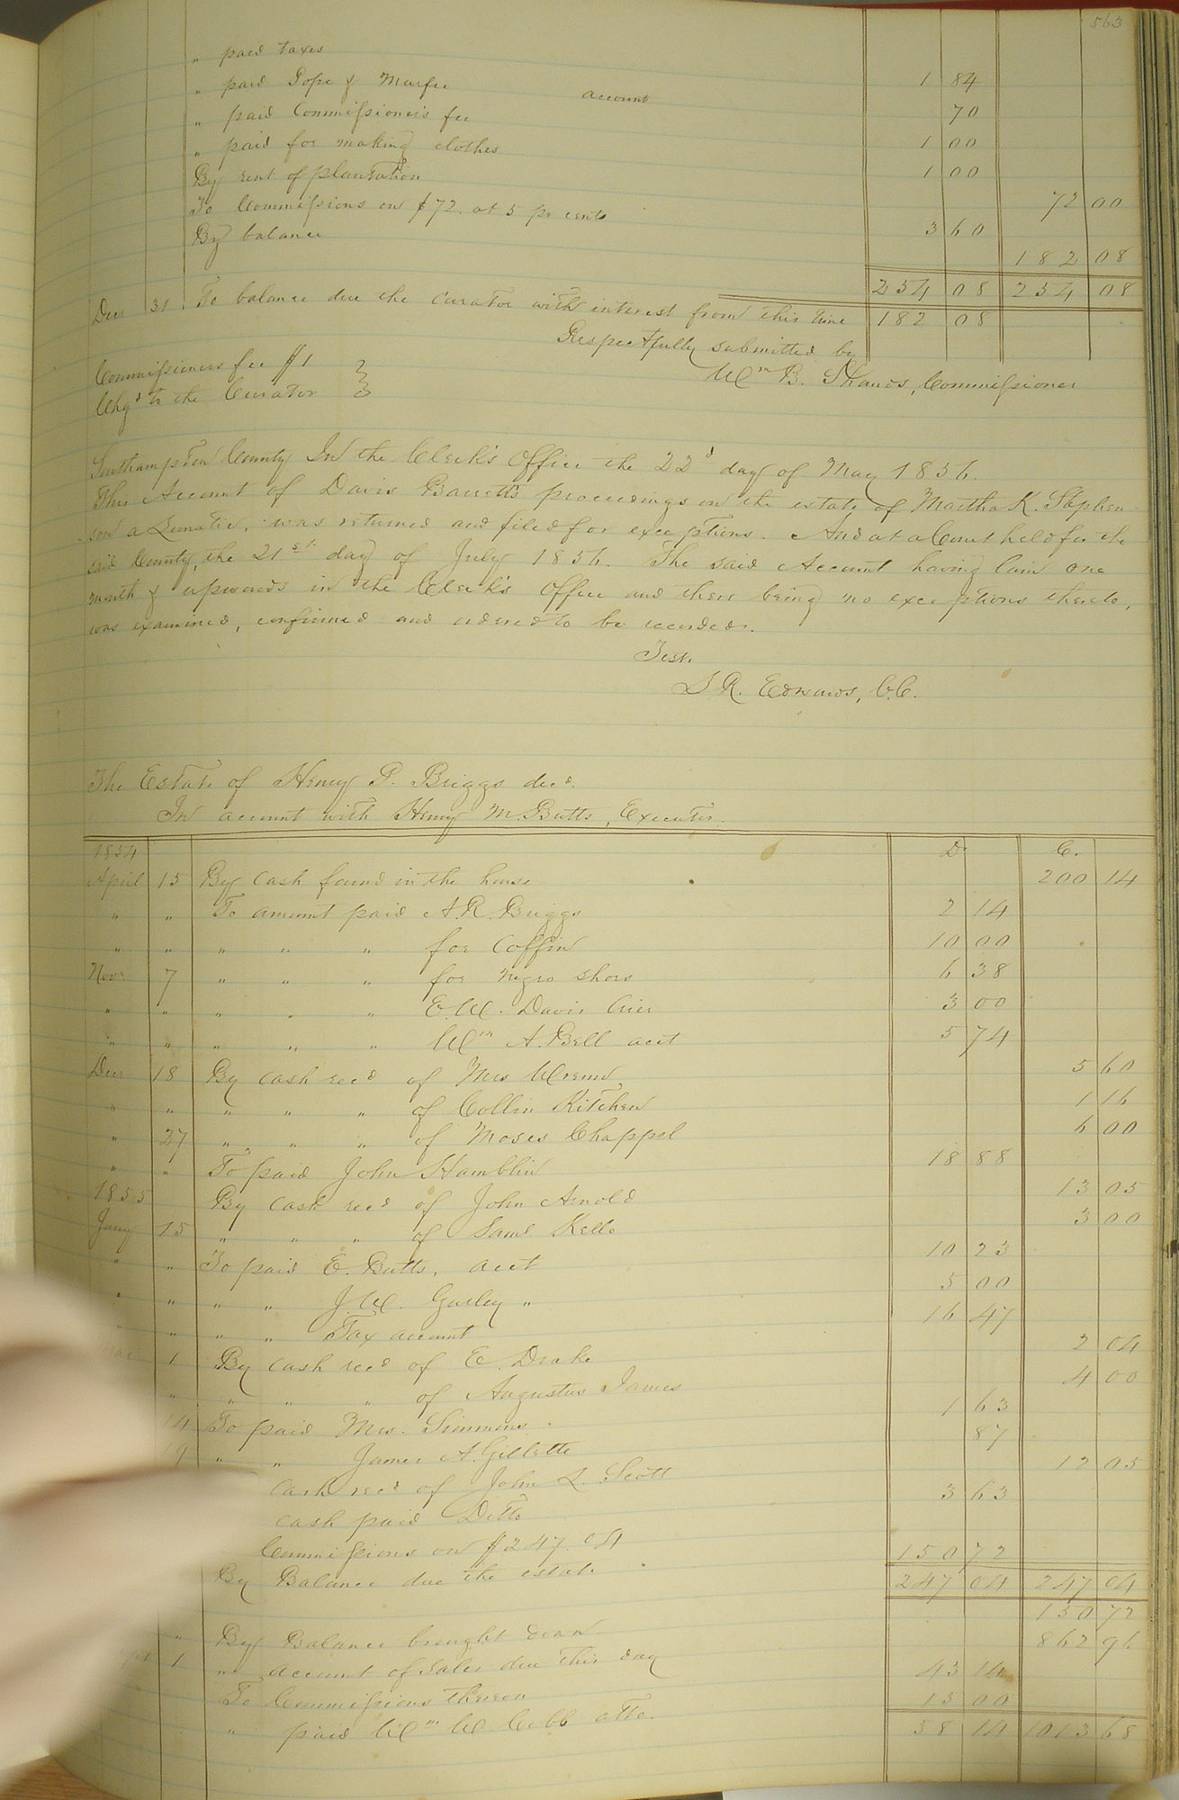 563
" paid taxes 1 84
" paid Pope & Murfee account 70
" paid Commissioner's fee 1 00
" paid for making clothes 1 00
By rent of plantation 72 00
To Commissions on $72. at 5 pr cents 3 60
By balance 182 08
254 08 254 08
Decr 31 To balance due the curator with interest from this time 182 08
Respectfully submitted by
Wm B. Shands, Commissioner
Commissioners fee $1
Chgd to the Curator
Southampton County In the Clerk's Office the 22d day of May 1856.
This Account of Davis Barrett's proceedings on the estate of Martha K. Stephen-
son a Lunatic, was returned and filed for exceptions. And at a Court held for the
said County, the 21st day of July 1856. The said Account having lain one
month & upwards in the Clerk's Office and there being no exceptions thereto,
was examined, confirmed and ordered to be recorded.
Test.
L R. Edwards, C.C.
The Estate of Henry P. Briggs decd.
In account with Henry M. Butts, Executor.
1854 D C.
April 15 By cash found in the house 200 14
" " To amount paid A. R. Briggs 2 14
" " " " " for Coffin 10 00
Novr 7 " " " for negro shoes 6 38
" " " " " E. W. Davis Crier 3 00
" " " " " Wm A. Bell acct 5 74
Decr 18 By cash recd of Mrs Wrenn 5 60
" " " " " of Collin Kitchen 1 16
" 27 " " " of Moses Chappel 6 00
" " To paid John Hamblin 18 88
1855 By cash recd of John Arnold 13 05
Jany 15 " " " of Saml Kello 3 00
" " To paid E. Butts, acct 10 23
" " " " J. W. Gurley " 5 00
" " " " Tax account 16 47
1 By cash recd of E. Drake 2 04
" " " " of Augustus James 4 00
14 To paid Mrs. Simmons 1 63
19 " " James A. Gillette 87
Cash recd of John L. Scott 12 05
Cash paid Ditto 3 63
Commissions on $247.04
By Balance due the estate 150 72
247 04 247 04
" By Balance brought down 150 72
1 " account of sales due this day 862 96
To Commissions thereon 43 14
" paid Wm W. Cobb atto. 15 00
58 14 1013 68